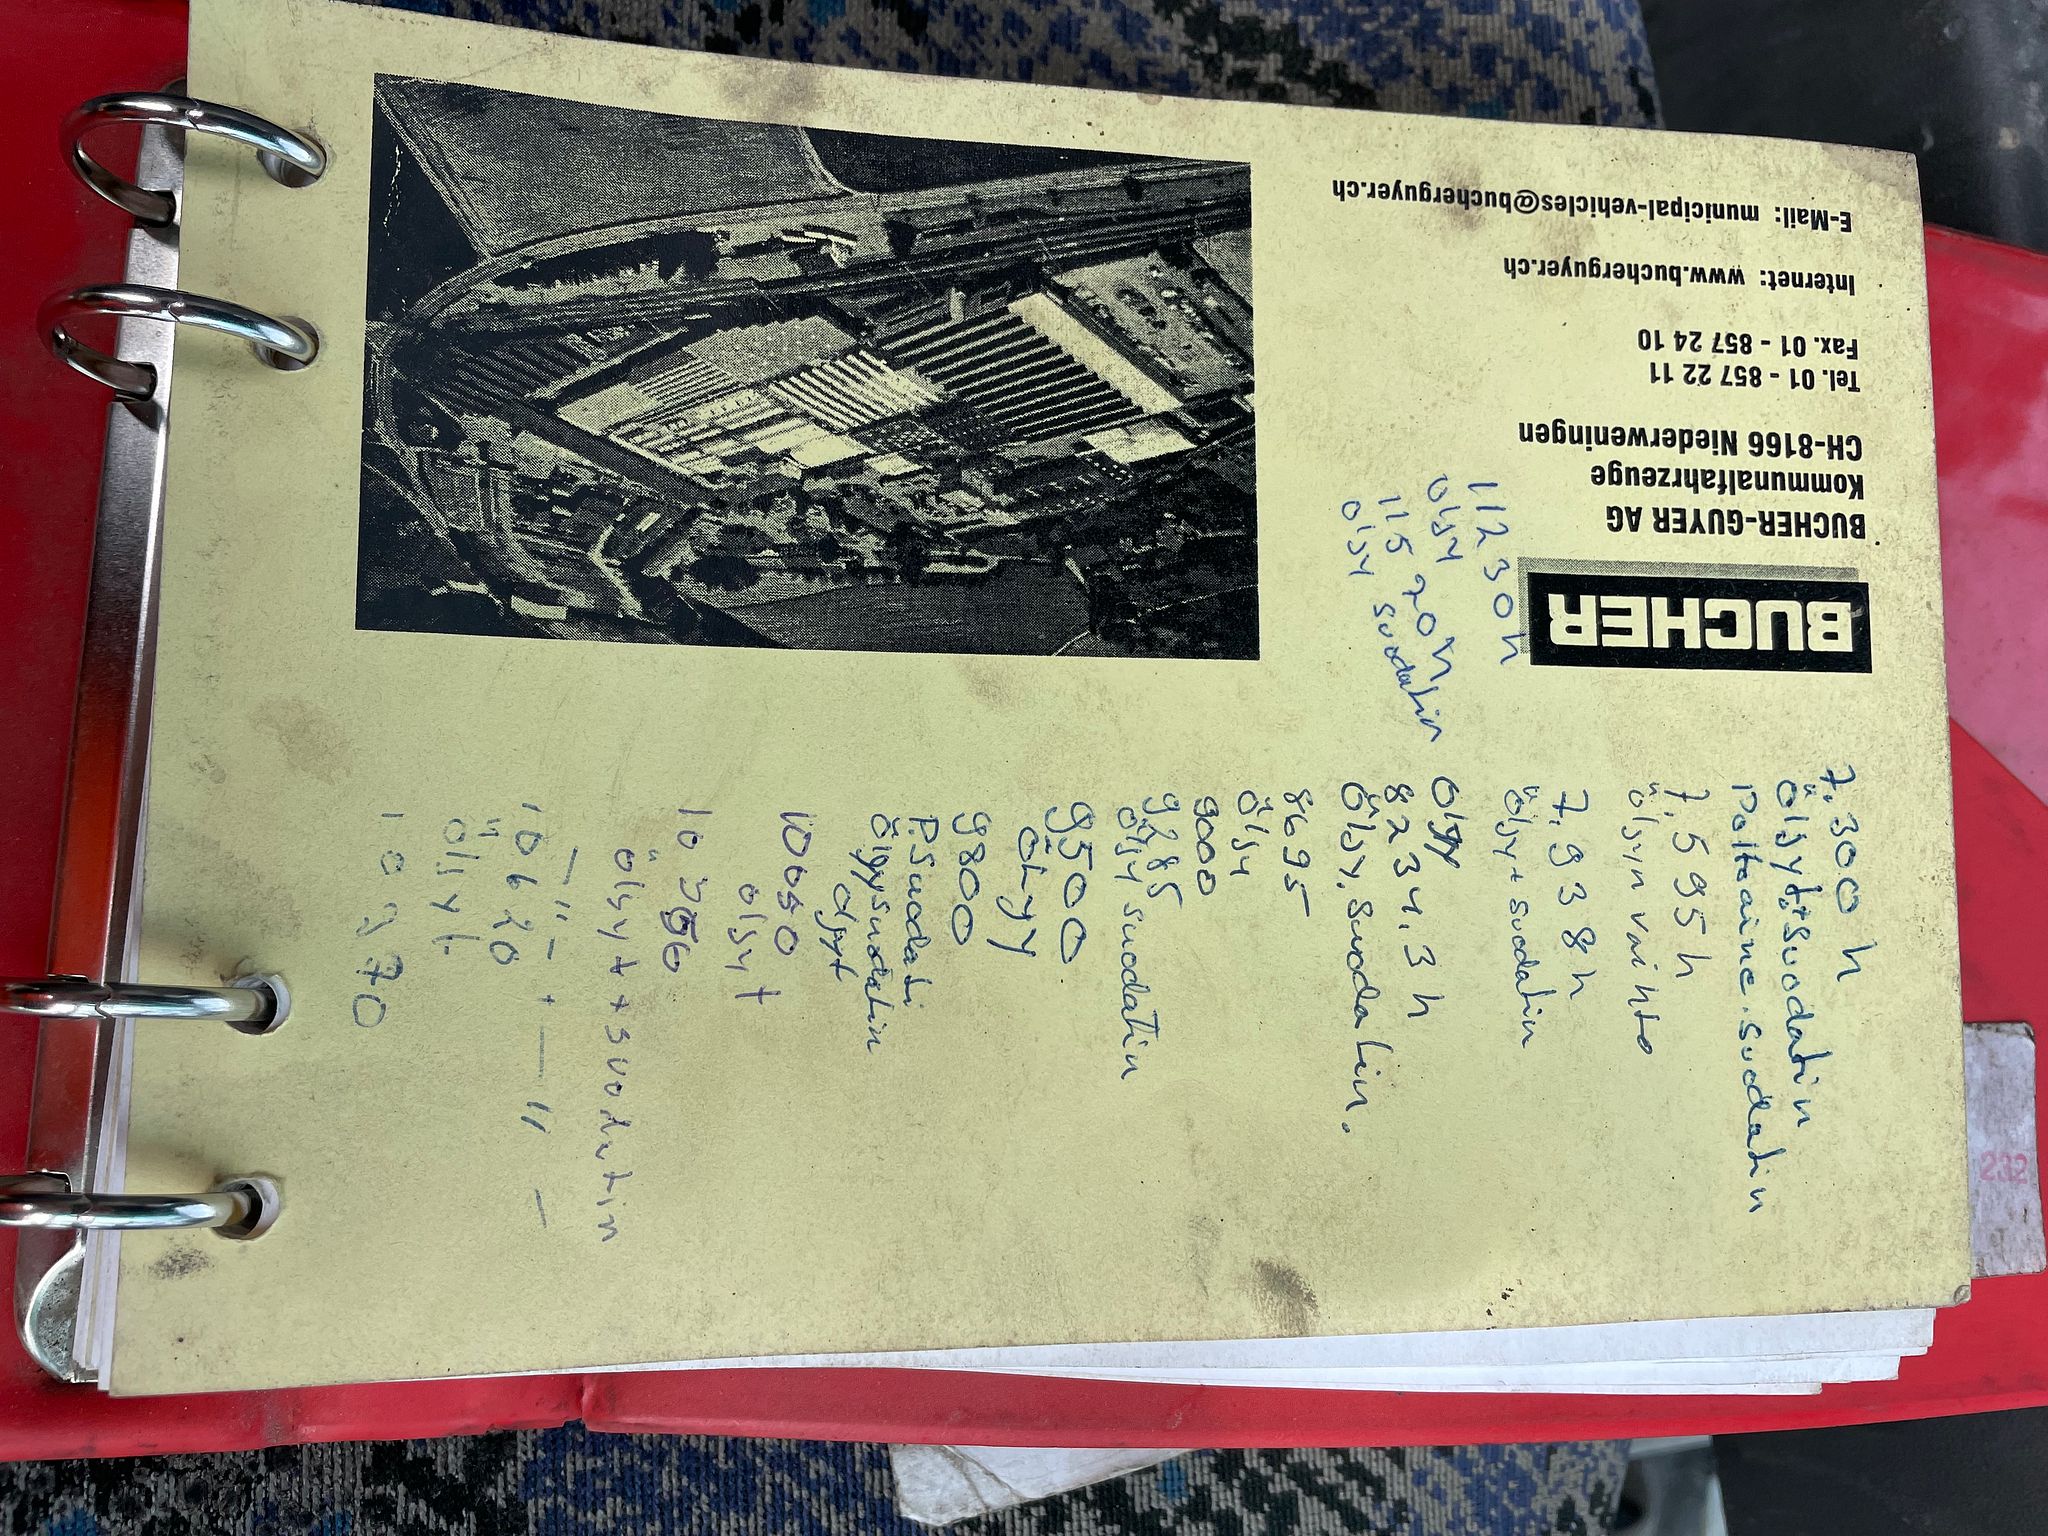 BUCHER
BUCHER-GUYER AG
Kommunalfahrzeuge
CH-8166 Niederweningen
Tel. 01 - 857 22 11
Fax. 01 - 857 24 10
Internet: www.bucherguyer.ch
E-Mail: municipal-vehicles@bucherguyer.ch
7.300 h
öljyt+suodatin
Polttoaine.suodatin
7,595 h
öljyn vaihto
7,938 h
öljy+suodatin
öljy
8234,3 h
öljy,suodatin.
8695
öljy
9000
9285
öljy suodatin
9500
öljy
9800
P.Suodati
öljysuodatin
öljyt
10050
öljyt
10350
öljyt+suodatin
— " — + — " —
10620
öljyt
10970
11230h
öljy
11520h
öljy suodatin
232